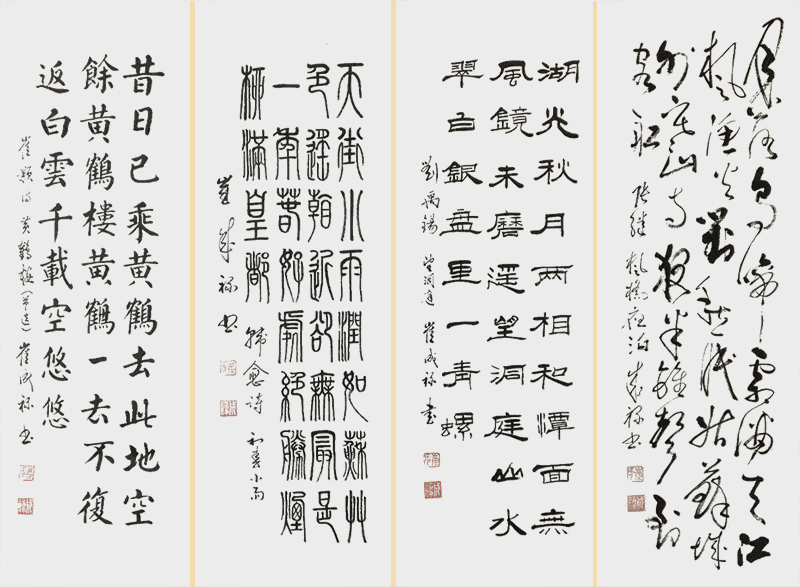 月落烏啼霜滿天江
枫渔火對愁眠姑蘇城
外寒山寺夜半鐘聲到
客船
张继 枫橋夜泊 崔成禄书
湖光秋月两相和潭面無
風鏡未磨遥望洞庭山水
翠白銀盘里一青螺
劉禹錫 望洞庭 崔成禄书
天街小雨潤如蘇艸
色遥看近卻無最是
一年春好處絕勝煙
柳滿皇都 韩愈诗 初春小雨
崔成禄书
昔日已乘黄鶴去此地空
餘黄鶴樓黄鶴一去不復
返白雲千載空悠悠
崔颢诗黄鹤楼(节选)崔成禄书